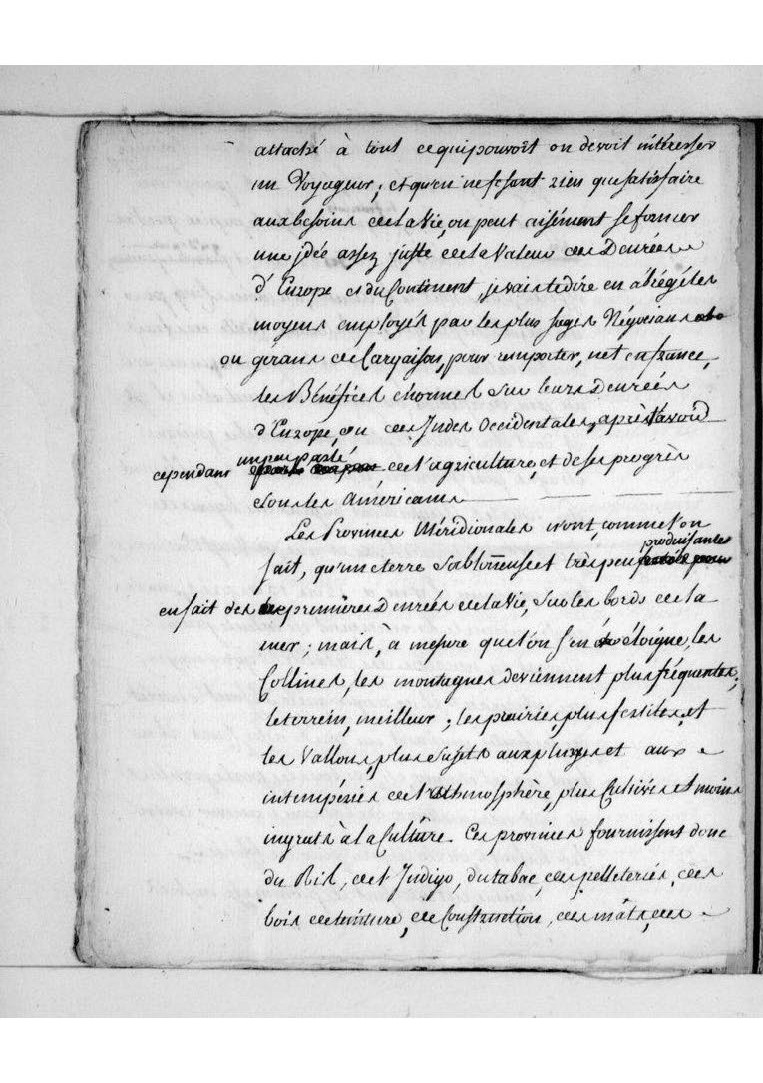 attaché à tout ce qui pouvoit ou devoit intéresser
un Voyageur; et qu'en ne fesant rien que satisfaire
aux besoins de la Vie, on peut aisément se former
une jdée assez juste de la Valeur des Denrées
d'Europe et du Continent, je vais te dire en abrégé les
moyens employés par les plus sages Négocians
ou gérans de Cargaison, pour emporter, net en france,
les Bénéfices énormes sur leurs Denrées
d'Europe, ou des Jndes Occidentales, après t'avoir
cependans un peu parlé de l'agriculture, et de ses progrès
chez les Américains
Les Provinces Méridionales n'ont, comme l'on
sait, qu'une terre Sablonneuse et très peu produisante
en fait des premières Denrées de la Vie, sur les bords de la
mer; mais, à mesure que l'on s'en éloigne, les
Collines, les montagnes deviennent plus fréquentes;
le terrein, meilleur; les prairies, plus fertiles, et
les Vallons, plus Sujets aux pluyes et aux
intempéries de l'athmosphère, plus Cultivés et moins
ingrats à la Culture. Ces provinces fournissent donc
du Ris, de l'Jndigo, du tabac, des pelleteries, des
bois de teinture, de Construction, des mâts, des